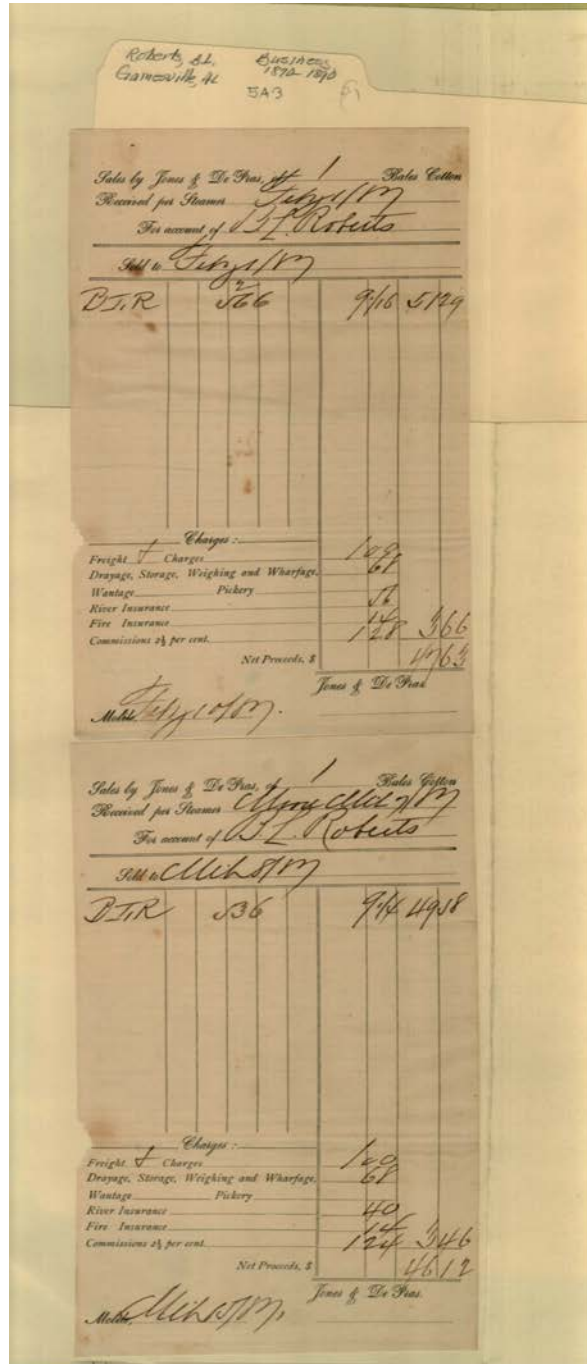 Roberts, B.L. Business
Gainesville, AL 1872-1890
5A3
Sales by Jones & De Fras, of 1 Bales Cotton
Received per Steamer Feby
For account of B L. Roberts
Sold to Feby
B.L.R 566 2 9 1/16 51 29
Charges:
Freight & Charges 1 09
Drayage, Storage, Weighing and Wharfage, 68
Wantage Pickery
River Insurance
Fire Insurance 14
Commissions 2½ per cent. 1 28 3 66
Net Proceeds, $ 47 63
Jones & De Fras
Mobile, Feby 10/87.
Sales by Jones & De Fras, of 1 Bales Cotton
Received per Steamer
For account of B L. Roberts
Sold to Mch 8/87
B.L.R 536 9 1/4 49 58
Charges:
Freight & Charges 1 00
Drayage, Storage, Weighing and Wharfage, 68
Wantage Pickery
River Insurance 40
Fire Insurance 14
Commissions 2½ per cent. 1 24 3 46
Net Proceeds, $ 46 12
Jones & De Fras.
Mobile,